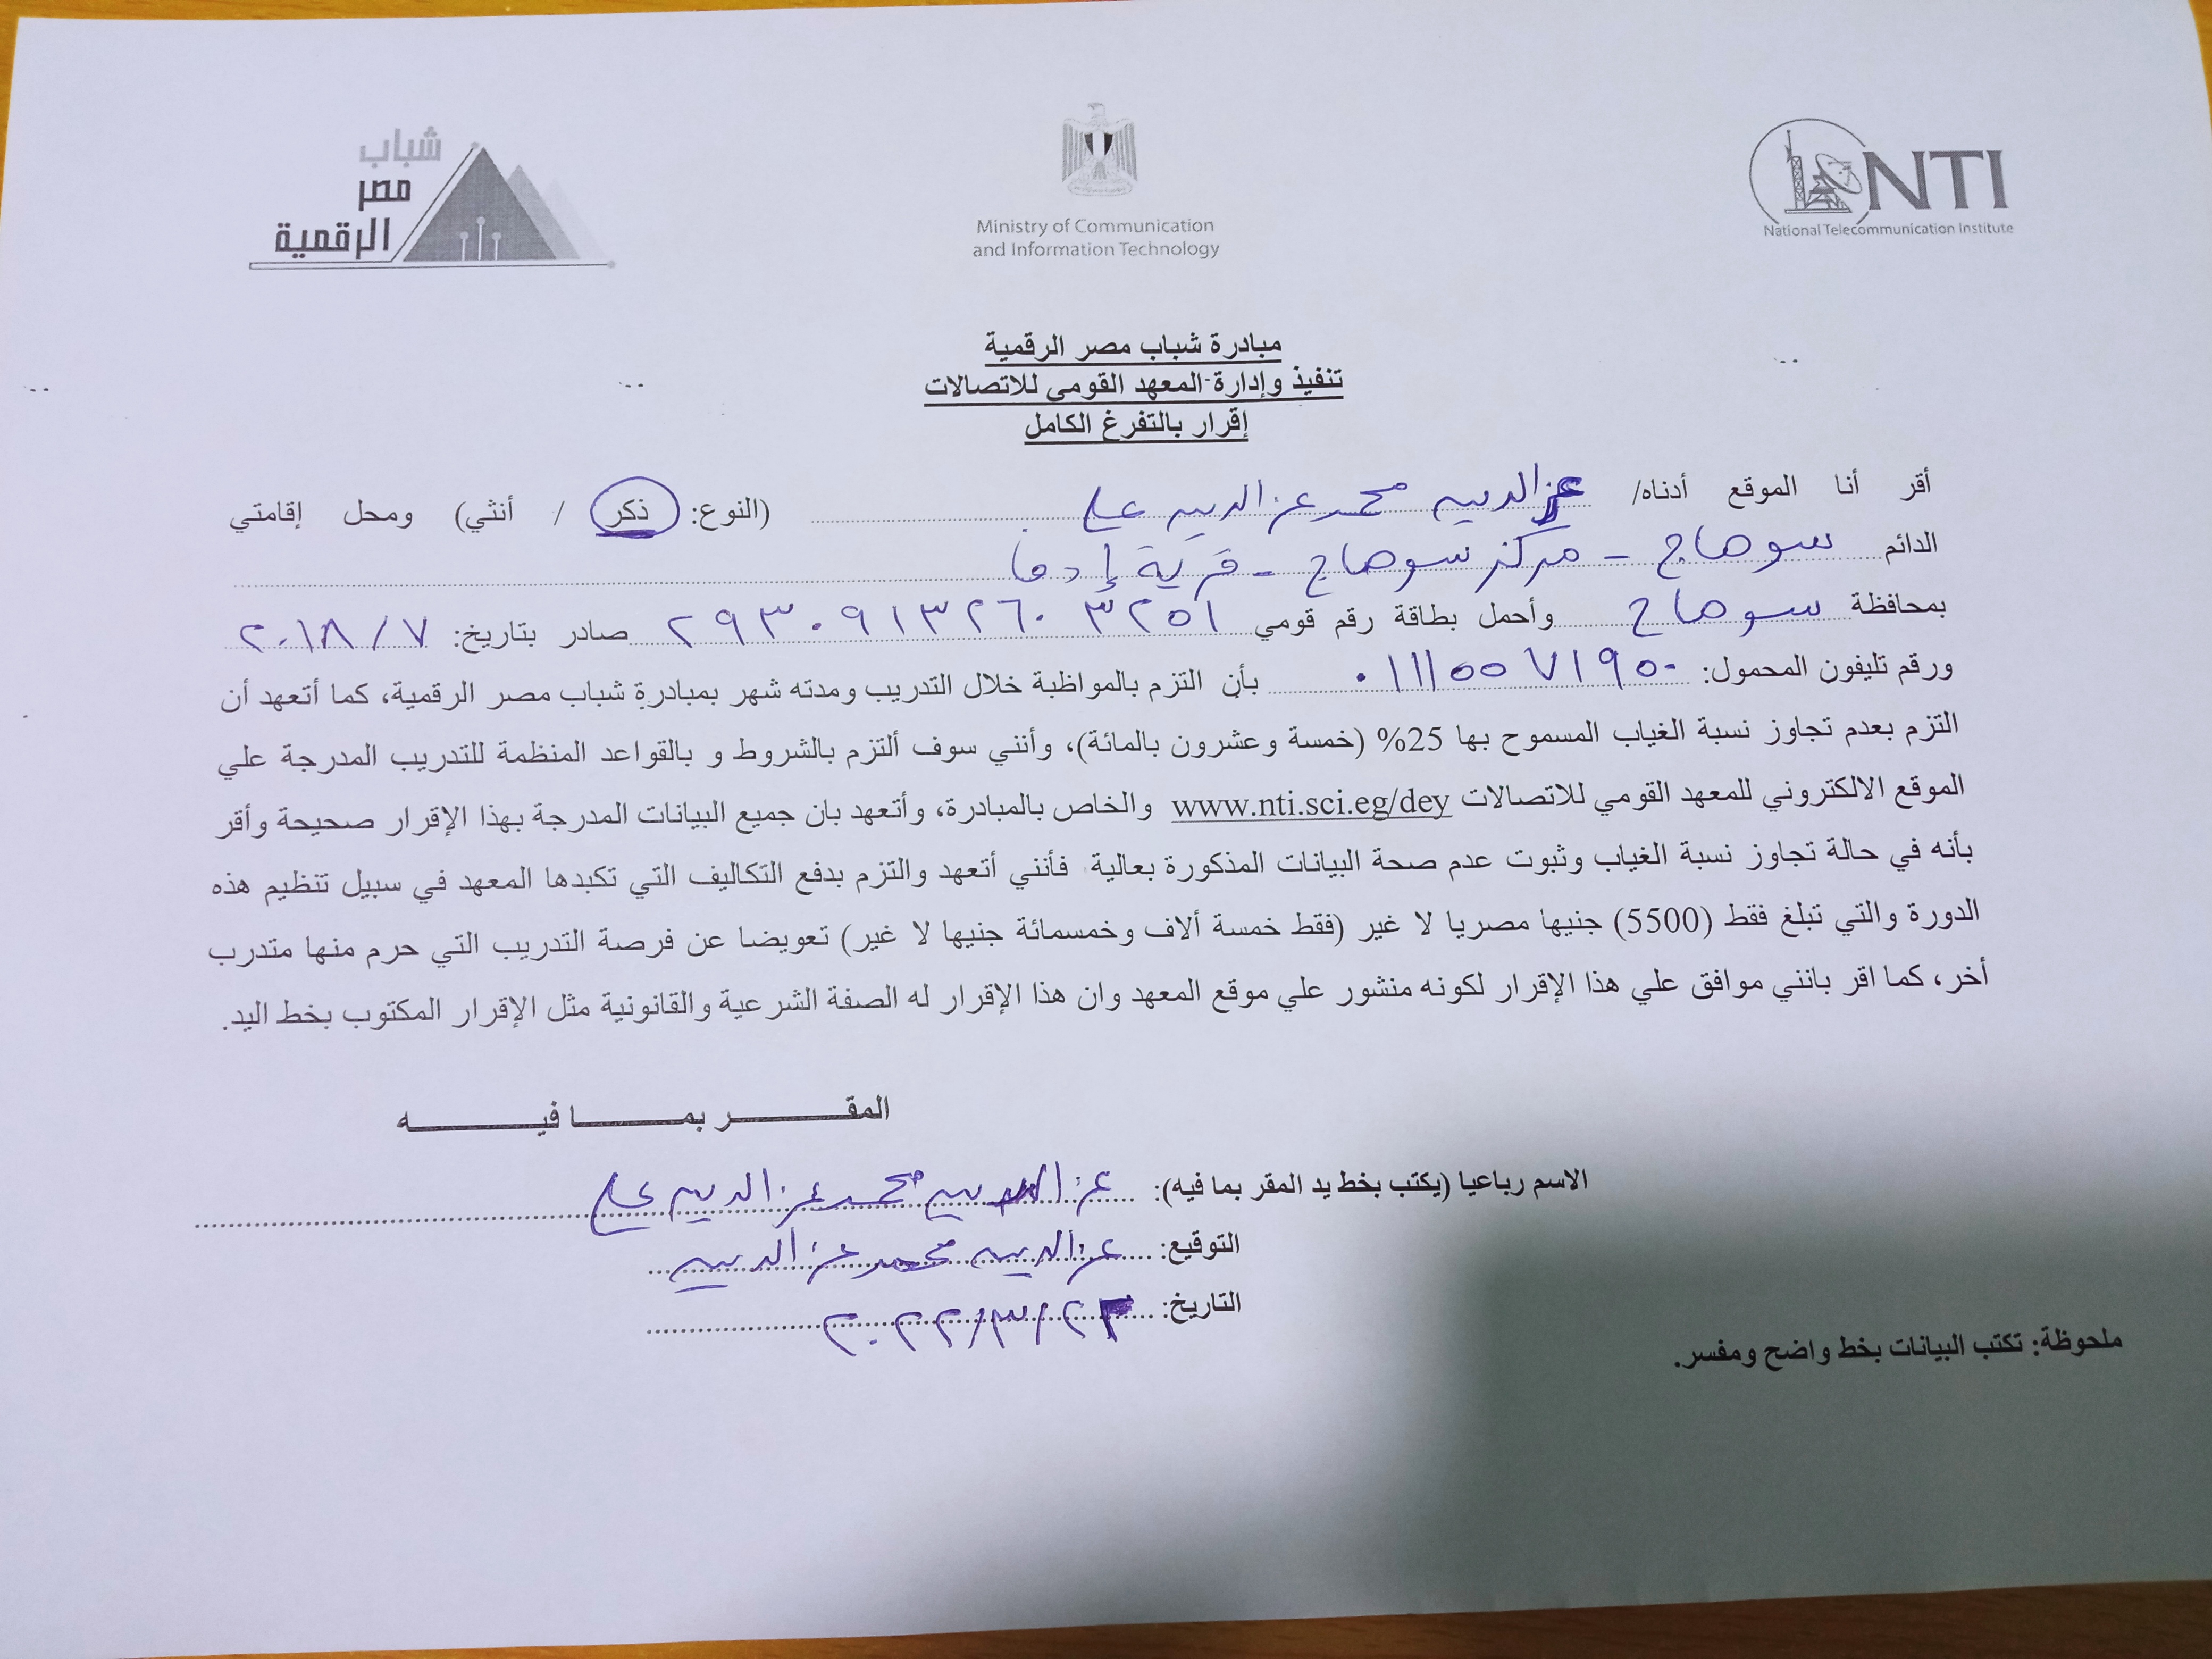 شباب
مصر
الرقمية
Ministry of Communication
and Information Technology
NTI
National Telecommunication Institute
مبادرة شباب مصر الرقمية
تنفيذ وإدارة-المعهد القومي للاتصالات
إقرار بالتفرغ الكامل
أقر أنا الموقع أدناه/ عز الدين محمد عز الدين علي (النوع: ذكر / أنثي) ومحل إقامتي
الدائم سوهاج - مركز سوهاج - قرية إدفا
بمحافظة سوهاج وأحمل بطاقة رقم قومي ٢٩٣٠٩١٣٢٦٠٣٢٥١ صادر بتاريخ: ٢٠١٨/٧
ورقم تليفون المحمول: ٠١١١٥٥٧١٩٥٠ بأن التزم بالمواظبة خلال التدريب ومدته شهر بمبادرة شباب مصر الرقمية، كما أتعهد أن
التزم بعدم تجاوز نسبة الغياب المسموح بها 25% (خمسة وعشرون بالمائة)، وأنني سوف ألتزم بالشروط و بالقواعد المنظمة للتدريب المدرجة علي
الموقع الالكتروني للمعهد القومي للاتصالات www.nti.sci.eg/dey والخاص بالمبادرة، وأتعهد بان جميع البيانات المدرجة بهذا الإقرار صحيحة وأقر
بأنه في حالة تجاوز نسبة الغياب وثبوت عدم صحة البيانات المذكورة بعالية فأنني أتعهد والتزم بدفع التكاليف التي تكبدها المعهد في سبيل تنظيم هذه
الدورة والتي تبلغ فقط (5500) جنيها مصريا لا غير (فقط خمسة ألاف وخمسمائة جنيها لا غير) تعويضا عن فرصة التدريب التي حرم منها متدرب
أخر، كما اقر بانني موافق علي هذا الإقرار لكونه منشور علي موقع المعهد وان هذا الإقرار له الصفة الشرعية والقانونية مثل الإقرار المكتوب بخط اليد.
المقـــــــــر بمـــــــــا فيـــــــــه
الاسم رباعيا (يكتب بخط يد المقر بما فيه): عز الدين محمد عز الدين علي
التوقيع: عز الدين محمد عز الدين
التاريخ: ٢٠٢٢/٣/٢٣
ملحوظة: تكتب البيانات بخط واضح ومفسر.